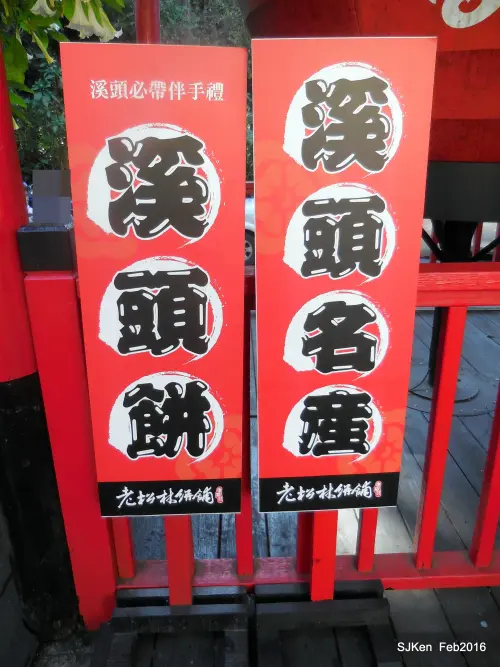 溪頭必帶伴手禮
溪頭餅
老松林餅舖
溪頭名產
老松林餅舖
SJKen Feb2016